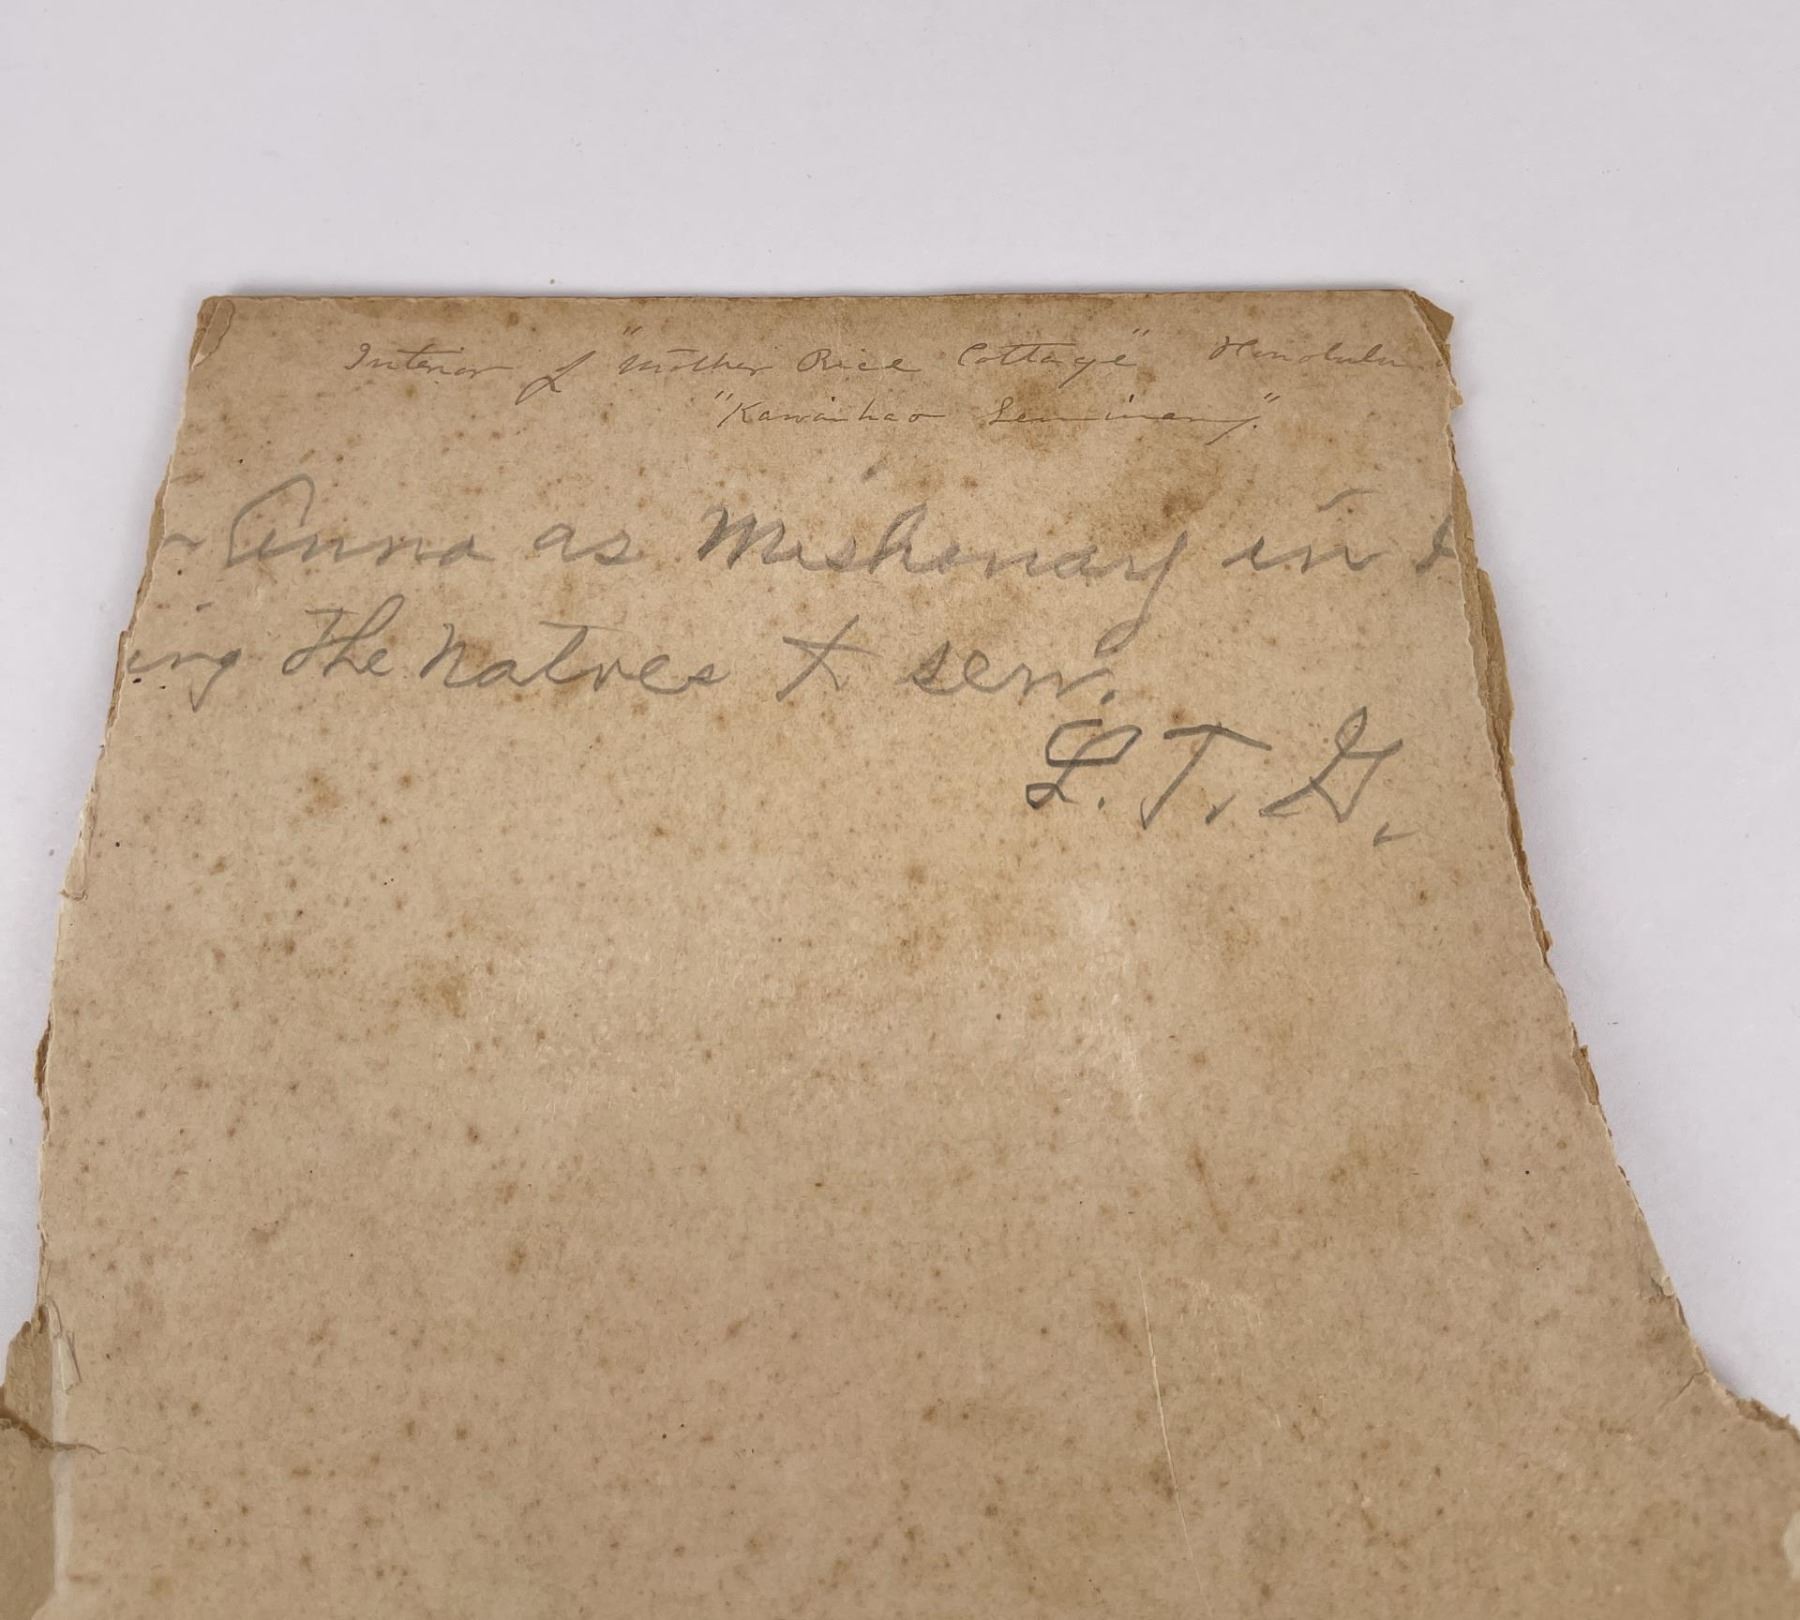 Interior of "Mother Rice Cottage" Honolulu
"Kawaihao Seminary."
Anna as Mishonary in
ing the natves to sew.
L. T. G.